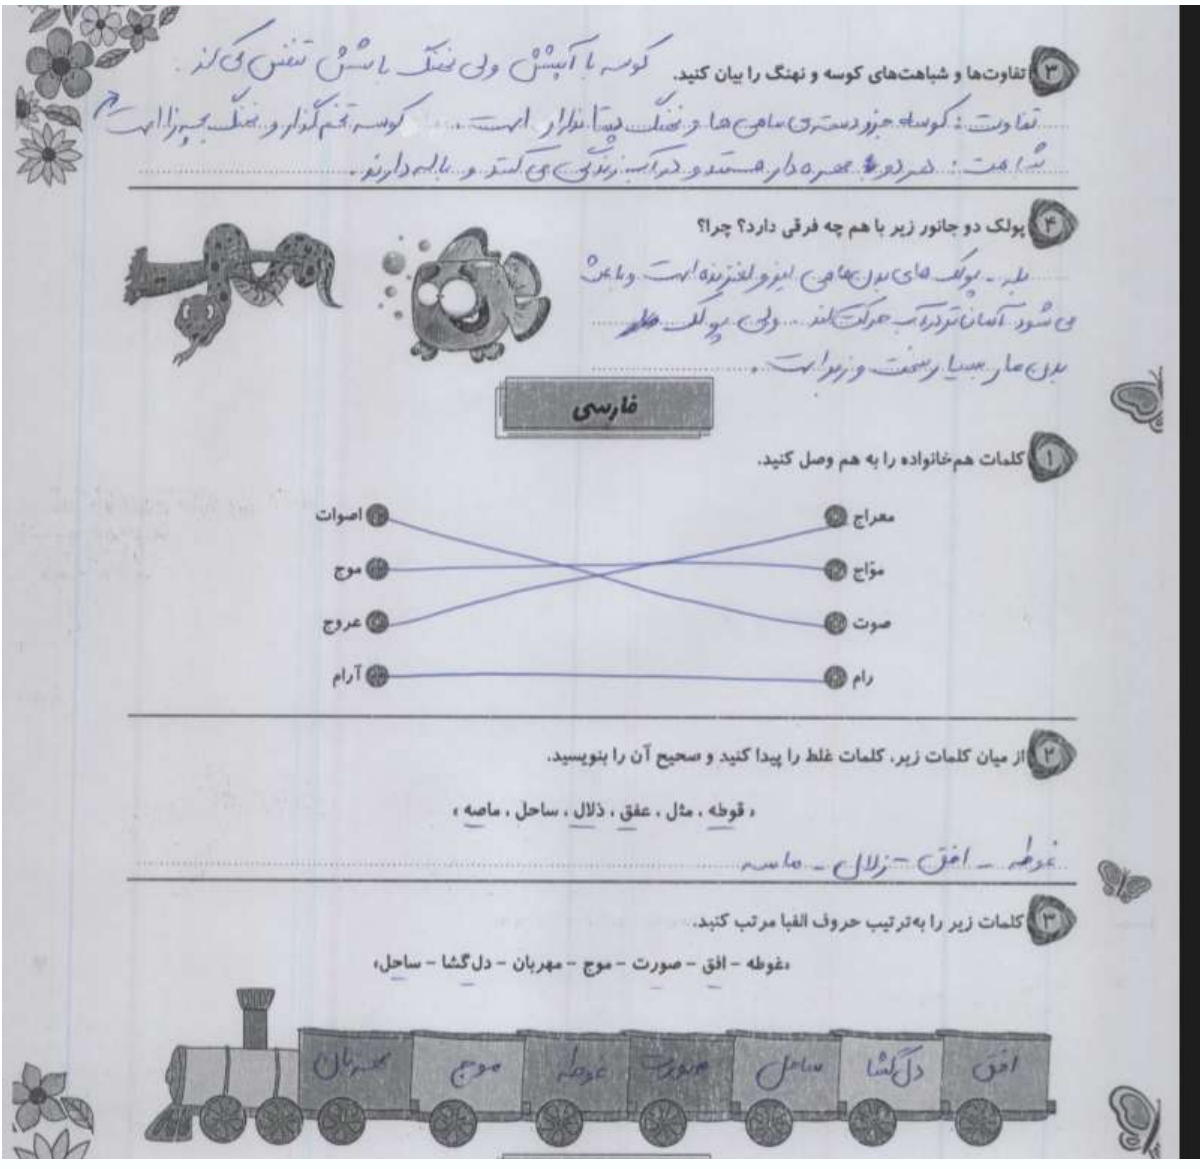 ۳ تفاوت‌ها و شباهت‌های کوسه و نهنگ را بیان کنید. کوسه با آبشش ولی نهنگ با شش تنفس می‌کند.
تفاوت: کوسه جزو دسته‌ی ماهی‌ها و نهنگ پستانداران است. کوسه تخم‌گذار و نهنگ بچه‌زا است
شباهت: هر دو مهره‌دار هستند و در آب زندگی می‌کنند و باله دارند.
۴ پولک دو جانور زیر با هم چه فرقی دارد؟ چرا؟
بله - پولک‌های بدن ماهی لیز و لغزنده است و باعث
می‌شود آسان‌تر در آب حرکت کند. ولی پولک
بدن مار بسیار سخت و زبر است.
فارسی
۱ کلمات هم‌خانواده را به هم وصل کنید.
معراج اصوات
موّاج موج
صوت عروج
رام آرام
۲ از میان کلمات زیر، کلمات غلط را پیدا کنید و صحیح آن را بنویسید.
« قوطه ، مثل ، عفق ، ذلال ، ساحل ، ماصه »
غوطه - افق - زلال - ماسه
۳ کلمات زیر را به‌ترتیب حروف الفبا مرتب کنید.
«غوطه - افق - صورت - موج - مهربان - دل‌گشا - ساحل»
افق دل‌گشا ساحل صورت غوطه موج مهربان